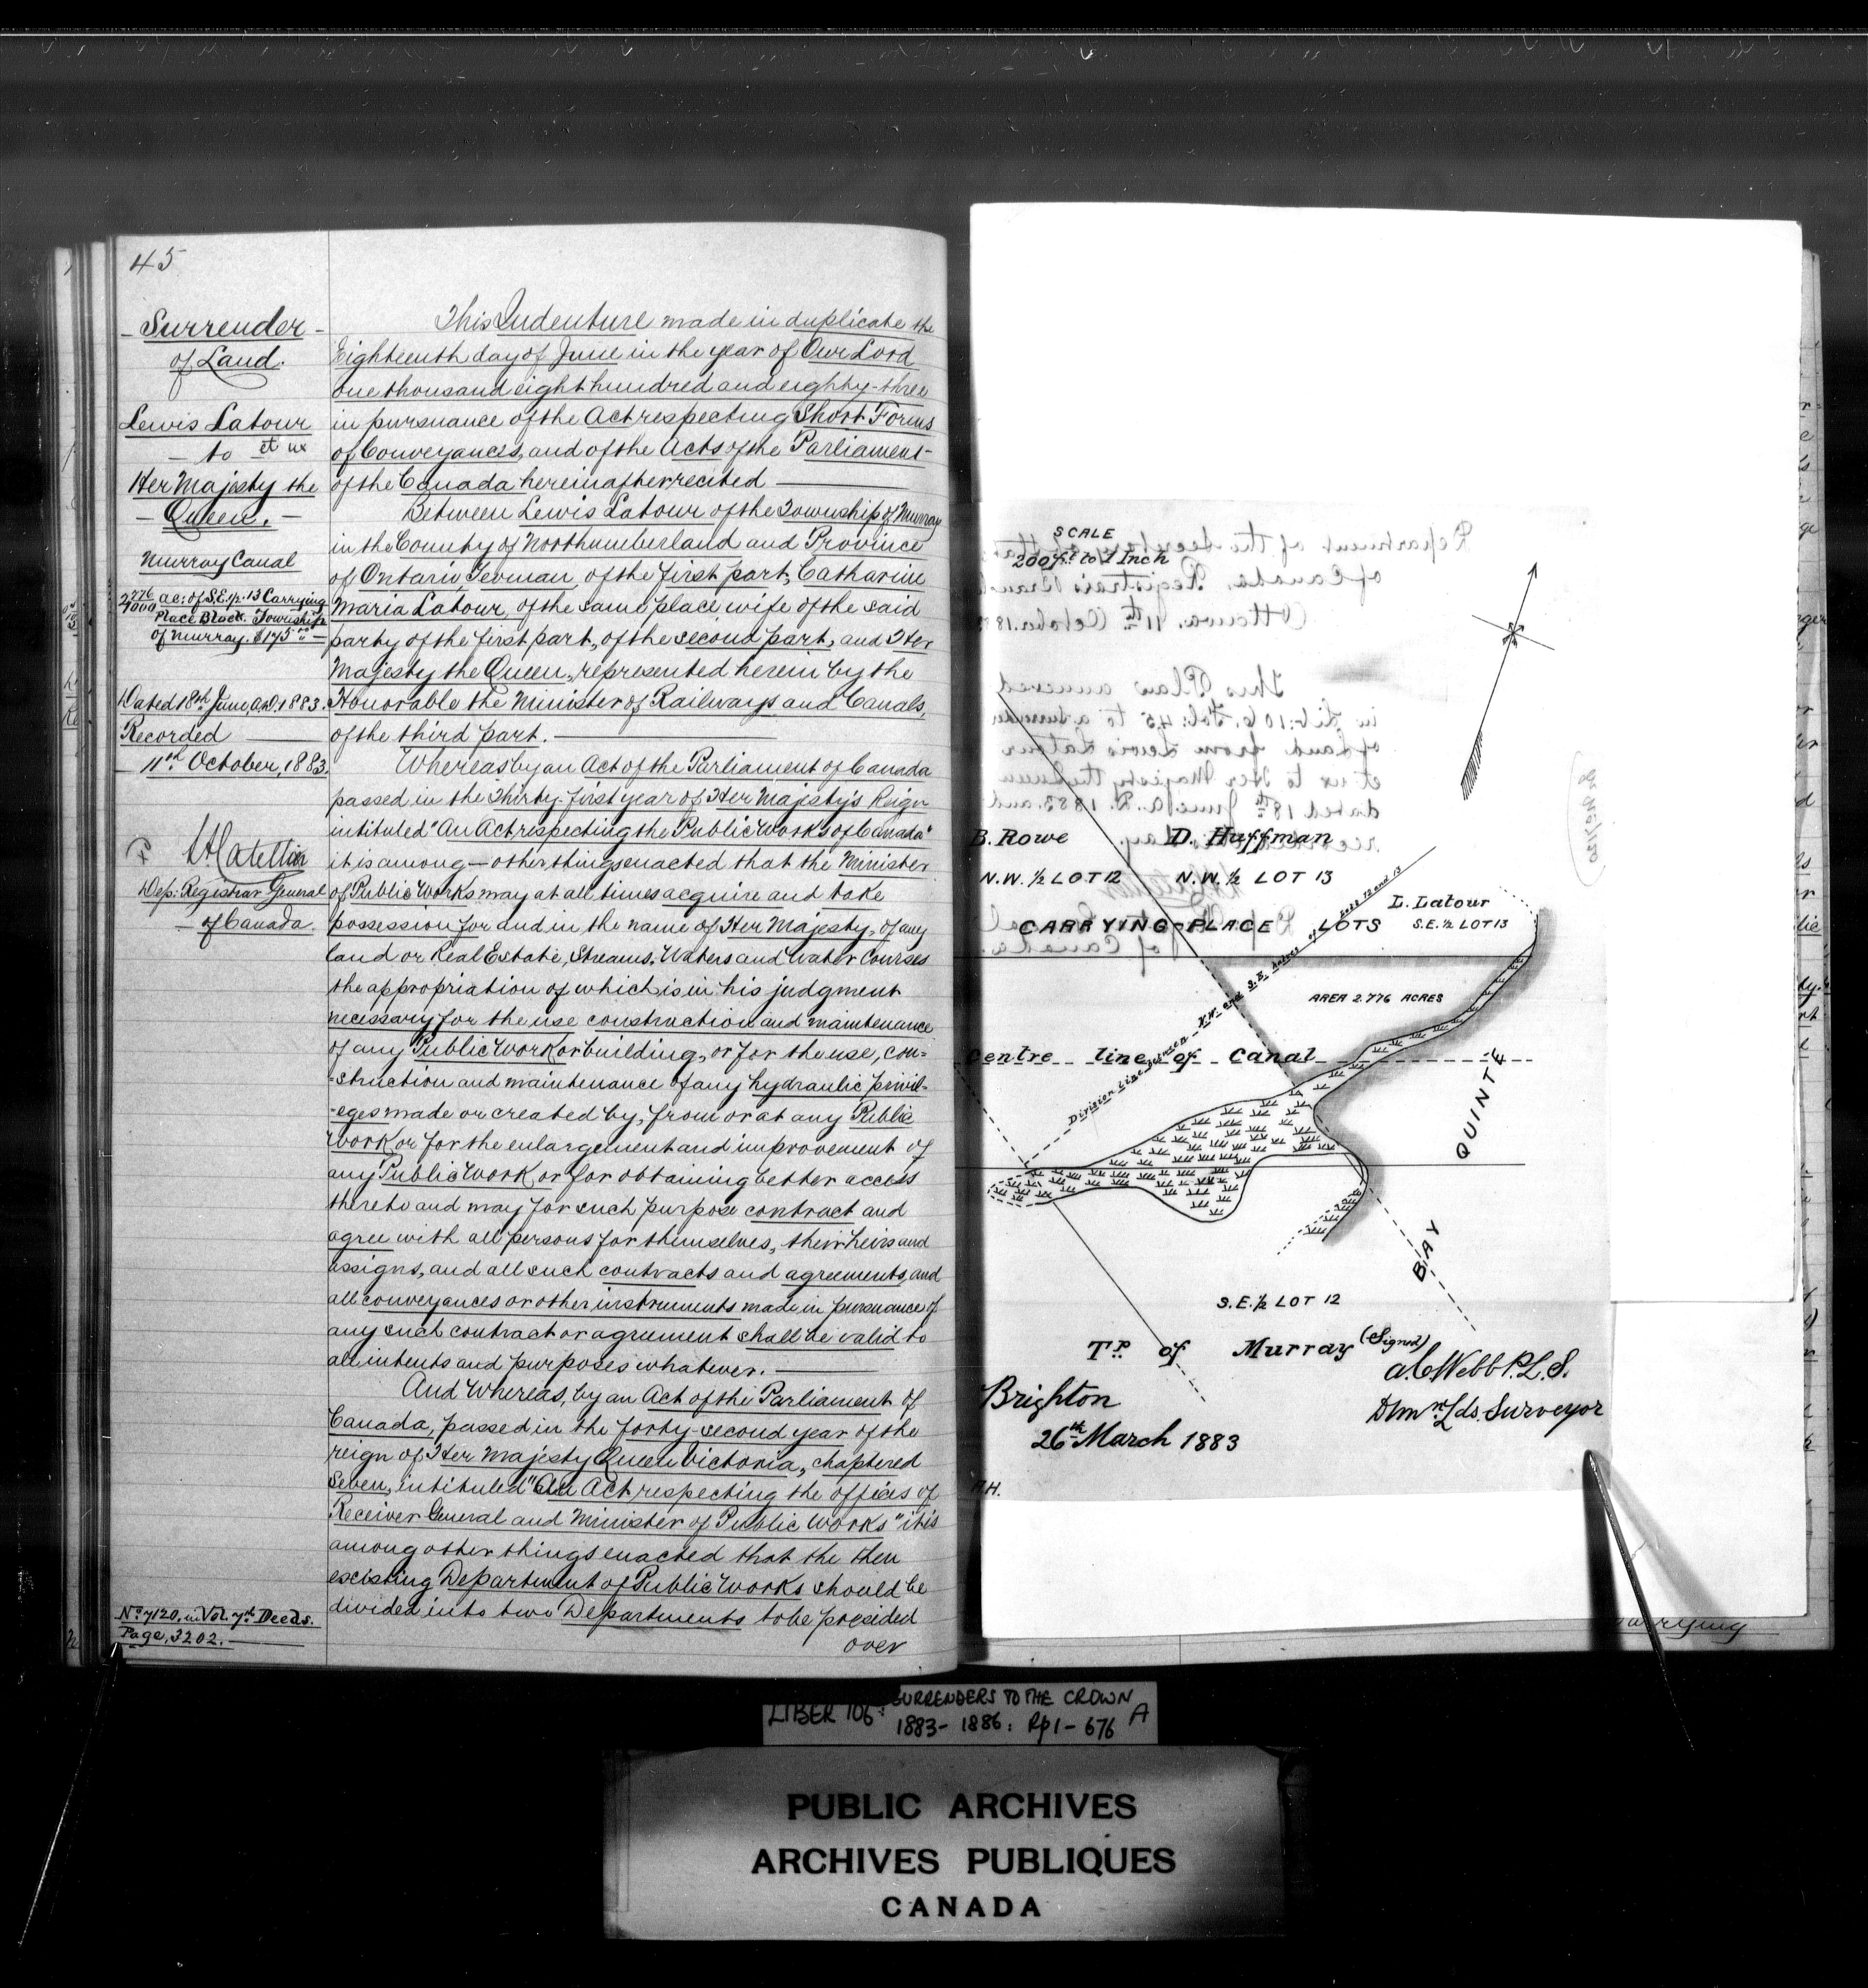 45
Surrender
of Land.
Lewis Latour
to et ux
Her Majesty the
Queen.
Murray Canal
2 776/1000 ac: of S.E. p. 13 Carrying
Place Block. Township
of Murray. $175.00
Dated 18th June, A.D. 1883.
Recorded
11th October, 1883.
Dep: Registrar General
of Canada.
No 7120, in Vol. 7th Deeds.
Page, 3202.
This Indenture made in duplicate the
Eighteenth day of June in the year of Our Lord
one thousand eight hundred and eighty-three
in pursuance of the Act respecting Short Forms
of Conveyances, and of the Acts of the Parliament
of the Canada hereinafter recited
Between Lewis Latour of the Township of Murray
in the County of Northumberland and Province
of Ontario, Yeoman, of the first part, Catharine
Maria Latour, of the same place wife of the said
party of the first part, of the second part, and Her
Majesty the Queen, represented herein by the
Honorable the Minister of Railways and Canals,
of the third part.
Whereas by an Act of the Parliament of Canada
passed in the Thirty-first year of Her Majesty's Reign
intituled "An Act respecting the Public Works of Canada"
it is among-other things enacted that the Minister
of Public Works may at all times acquire and take
possession for and in the name of Her Majesty, of any
land or Real Estate, Streams, Waters and Water Courses
the appropriation of which is in his judgment
necessary for the use construction and maintenance
of any Public Work or building, or for the use, con=
=struction and maintenance of any hydraulic privil=
=eges made or created by, from or at any Public
Work or for the enlargement and improvement of
any Public Work or for obtaining better access
thereto and may for such purpose contract and
agree with all persons for themselves, their heirs and
assigns, and all such contracts and agreements, and
all conveyances or other instruments made in pursuance of
any such contract or agreement shall be valid to
all intents and purposes whatever.
And Whereas, by an Act of the Parliament of
Canada, passed in the forty-second year of the
reign of Her Majesty Queen Victoria, chaptered
seven, intituled "An Act respecting the offices of
Receiver General and Minister of Public Works" it is
among other things enacted that the then
existing Department of Public Works should be
divided into two Departments to be presided
over
SCALE
200 ft to 1 Inch
Department of the Secretary of State
of Canada. Registrar's Branch
Ottawa. 11th October. 18
This Plan annexed
in Lib: 106. Fol: 45 to a Surrender
of Land from Lewis Latour
et ux to Her Majesty the Queen
dated 18th June A.D. 1883 and
B. Rowe D. Huffman
N.W. ½ LOT 12 N.W. ½ LOT 13
L. Latour
S.E. ½ LOT 13
CARRYING-PLACE LOTS
Division Line between N.W. and S.E. halves of Lots 12 and 13
AREA 2.776 ACRES
Centre line of Canal
BAY QUINTE
S.E. ½ LOT 12
Tp of Murray
(Signed)
A.C. Webb P.L.S.
Dlmn Lds. Surveyor
Brighton
26th March 1883
LIBER 106: SURRENDERS TO THE CROWN A
1883-1886: Pp 1-676
PUBLIC ARCHIVES
ARCHIVES PUBLIQUES
CANADA